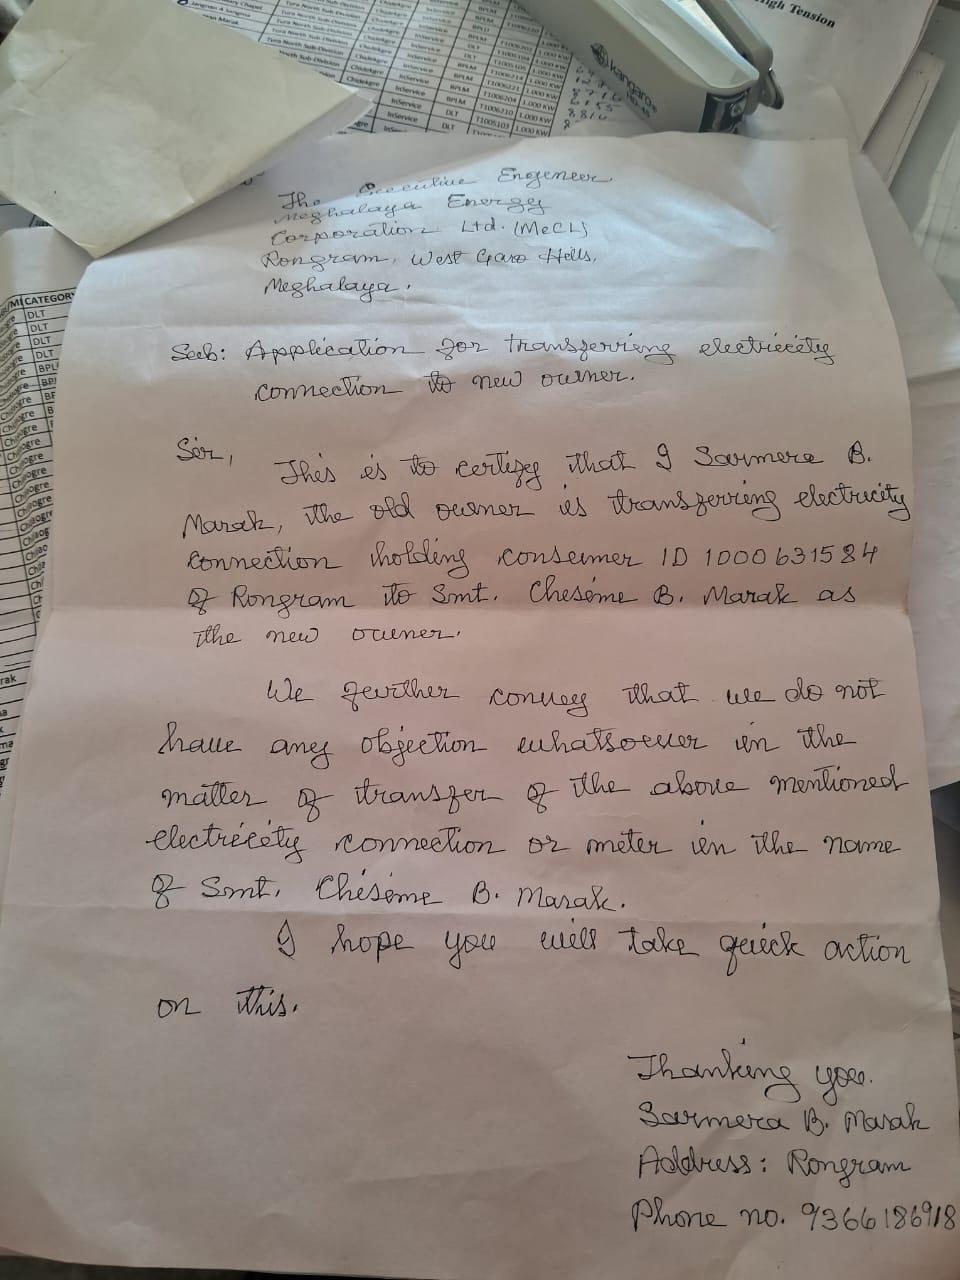 High Tension
kangaro
The Executive Engeneer
Meghalaya Energy
Corporation Ltd. (MeCL)
Rongram, West Garo Hills,
Meghalaya.
Sub: Application for transferring electricity
connection to new owner.
Sir,
This is to certify that I Sarmera B.
Marak, the old owner is transferring electricity
connection holding consumer ID 1000631584
of Rongram to Smt. Chesime B. Marak as
the new owner.
We further convey that we do not
have any objection whatsoever in the
matter of transfer of the above mentioned
electricity connection or meter in the name
of Smt. Chisime B. Marak.
I hope you will take quick action
on this.
Thanking you.
Sarmera B. Marak
Address: Rongram
Phone no. 9366186918
CATEGORY
DLT
DLT
DLT
DLT